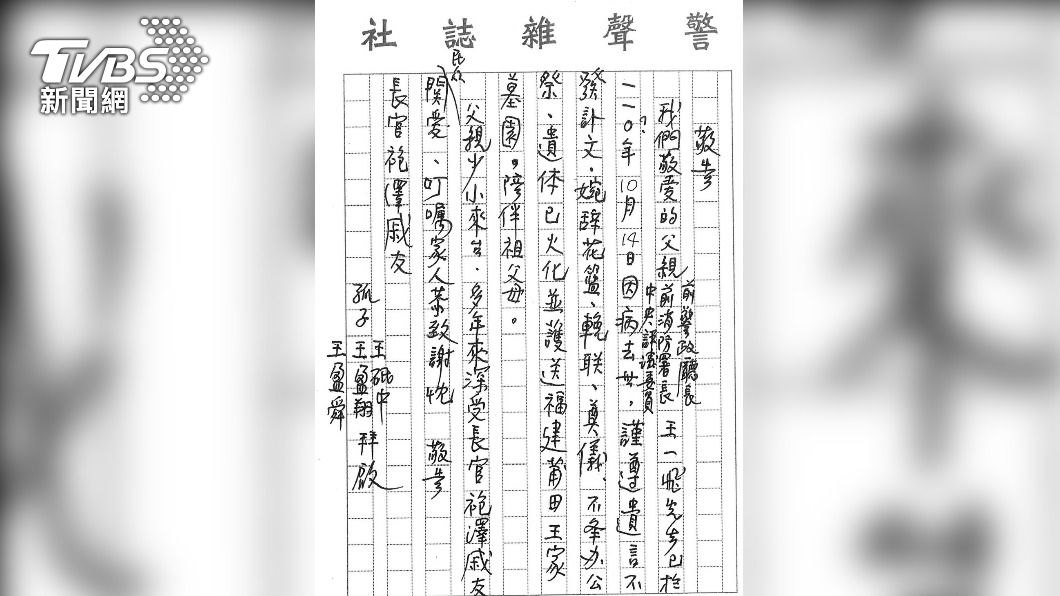 TVBS
新聞網
警聲雜誌社
敬告
我們敬愛的父親 前警政廳長 前消防署長 中央評議委員 王一飛先生已於
一一〇年10月14日因病去世,謹遵遺言不
發訃文,婉辞花籃、輓联、奠儀,不奉办公
祭、遺体已火化並護送福建莆田王家
墓園。陪伴祖父母。
父親少小來台,多年來深受長官袍澤戚友
民众
関愛、叮囑家人恭致謝忱 敬告
長官袍澤戚友
孤子 王砥中
王盈翔 拜啟
王盈舜